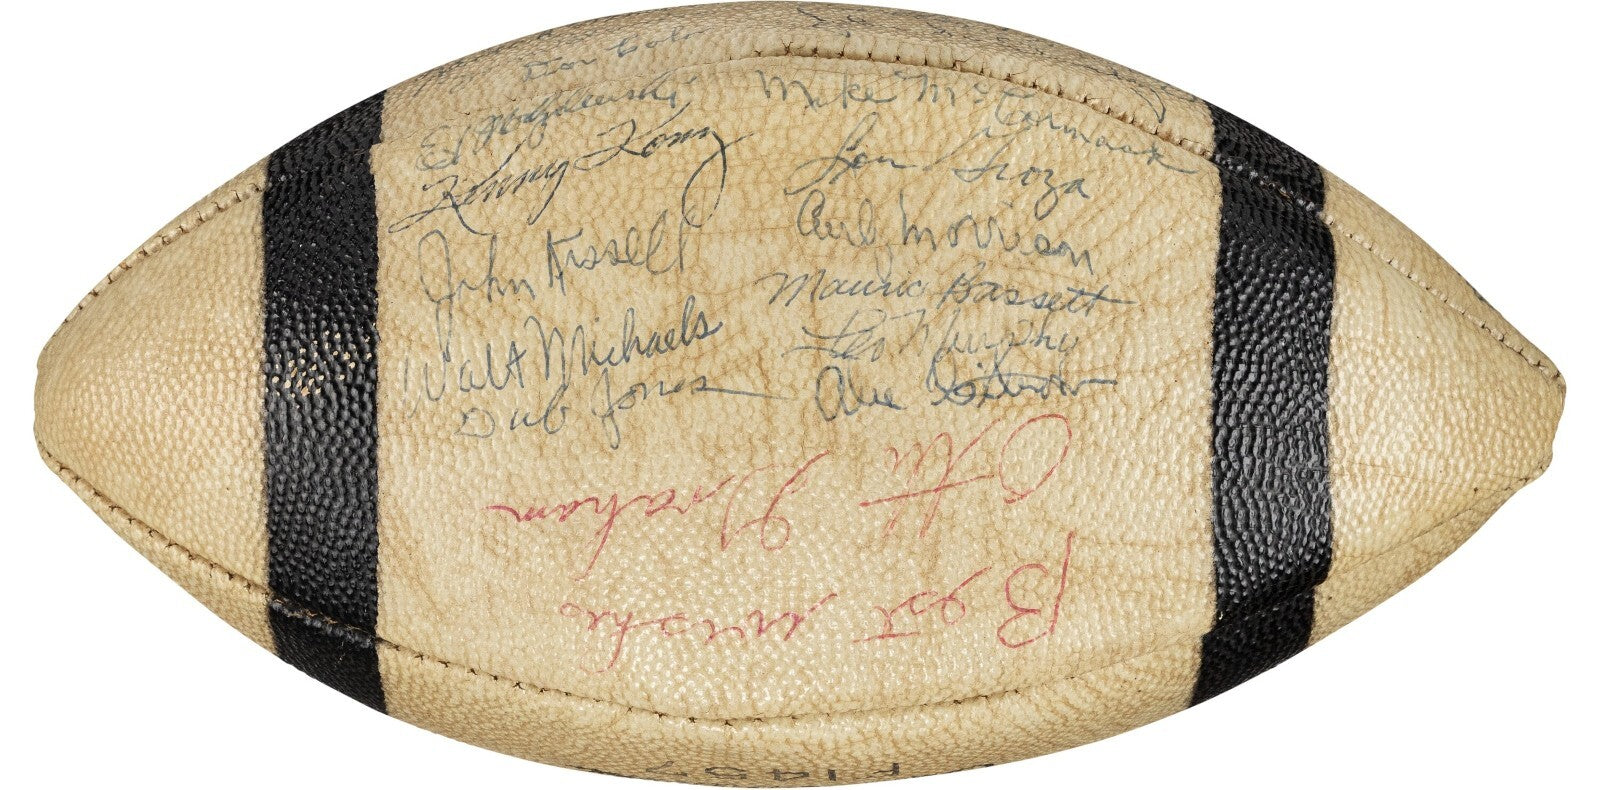 Don Colo
Ed
Kenny Konz
John Kissell
Walt Michaels
Dub Jones
Mike McCormack
Lou Groza
Fred Morrison
Maurice Bassett
Leo Murphy
Abe Gibron
Best wishes
Otto Graham
F1457